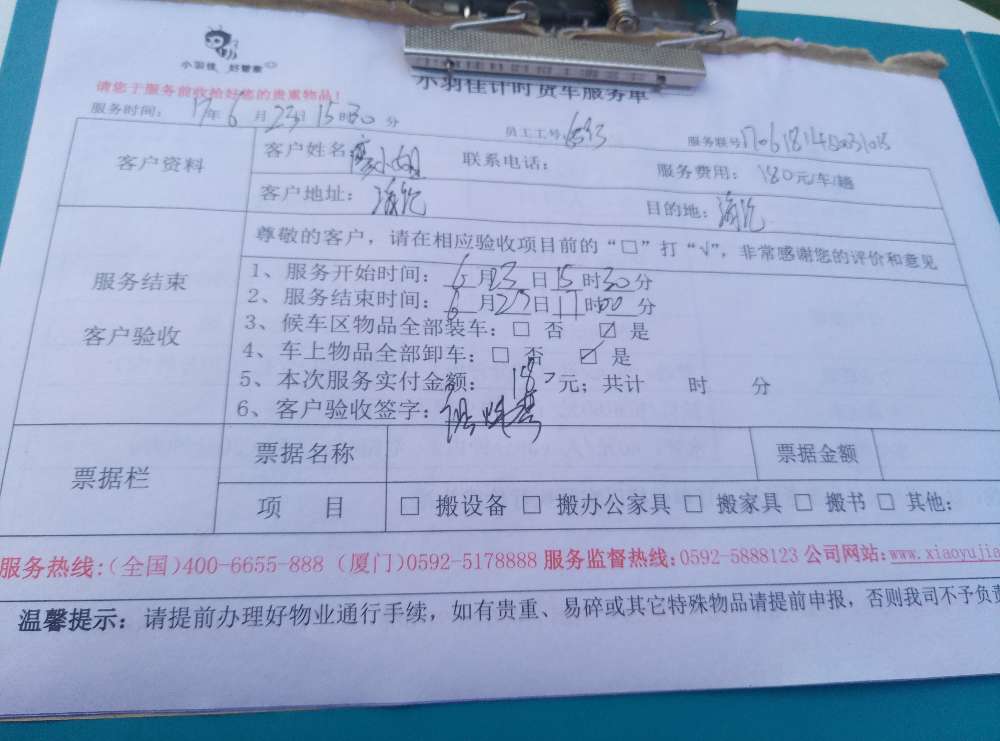 小羽佳 好管家
小羽佳计时货车服务单
请您于服务前收拾好您的贵重物品！
服务时间： 17年6月23日15时30分 员工工号： 服务联号
客户资料 客户姓名： 小姐 联系电话： 服务费用： 180元/车/趟
客户地址：海沧 目的地：海沧
尊敬的客户，请在相应验收项目前的“□”打“√”，非常感谢您的评价和意见
服务结束 客户验收
1、服务开始时间：6月23日15时30分
2、服务结束时间：6月23日17时00分
3、候车区物品全部装车：□ 否 ☑ 是
4、车上物品全部卸车：□ 否 ☑ 是
5、本次服务实付金额： 180元；共计 时 分
6、客户验收签字：
票据栏 票据名称 票据金额
项 目 □ 搬设备 □ 搬办公家具 □ 搬家具 □ 搬书 □ 其他：
服务热线：(全国)400-6655-888 (厦门)0592-5178888 服务监督热线：0592-5888123 公司网站：www.xiaoyujia
温馨提示：请提前办理好物业通行手续，如有贵重、易碎或其它特殊物品请提前申报，否则我司不予负责